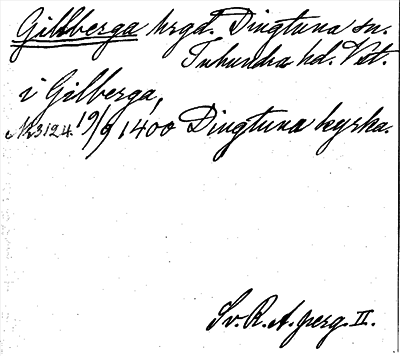 Gillberga hrgd. Dingtuna sn.
Tuhundra hd. Vstm.
i Gilberga,
N:r 3124. 19/9 1400 Dingtuna kyrka.
Sv. R. A. perg. II.